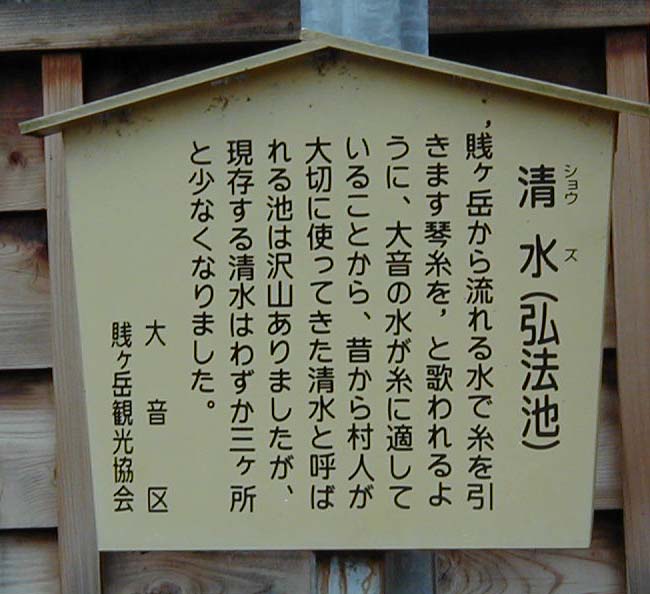 清水(弘法池)
ショウズ
’賤ヶ岳から流れる水で糸を引
きます琴糸を’と歌われるよ
うに、大音の水が糸に適して
いることから、昔から村人が
大切に使ってきた清水と呼ば
れる池は沢山ありましたが、
現存する清水はわずか三ヶ所
と少なくなりました。
大音区
賤ヶ岳観光協会